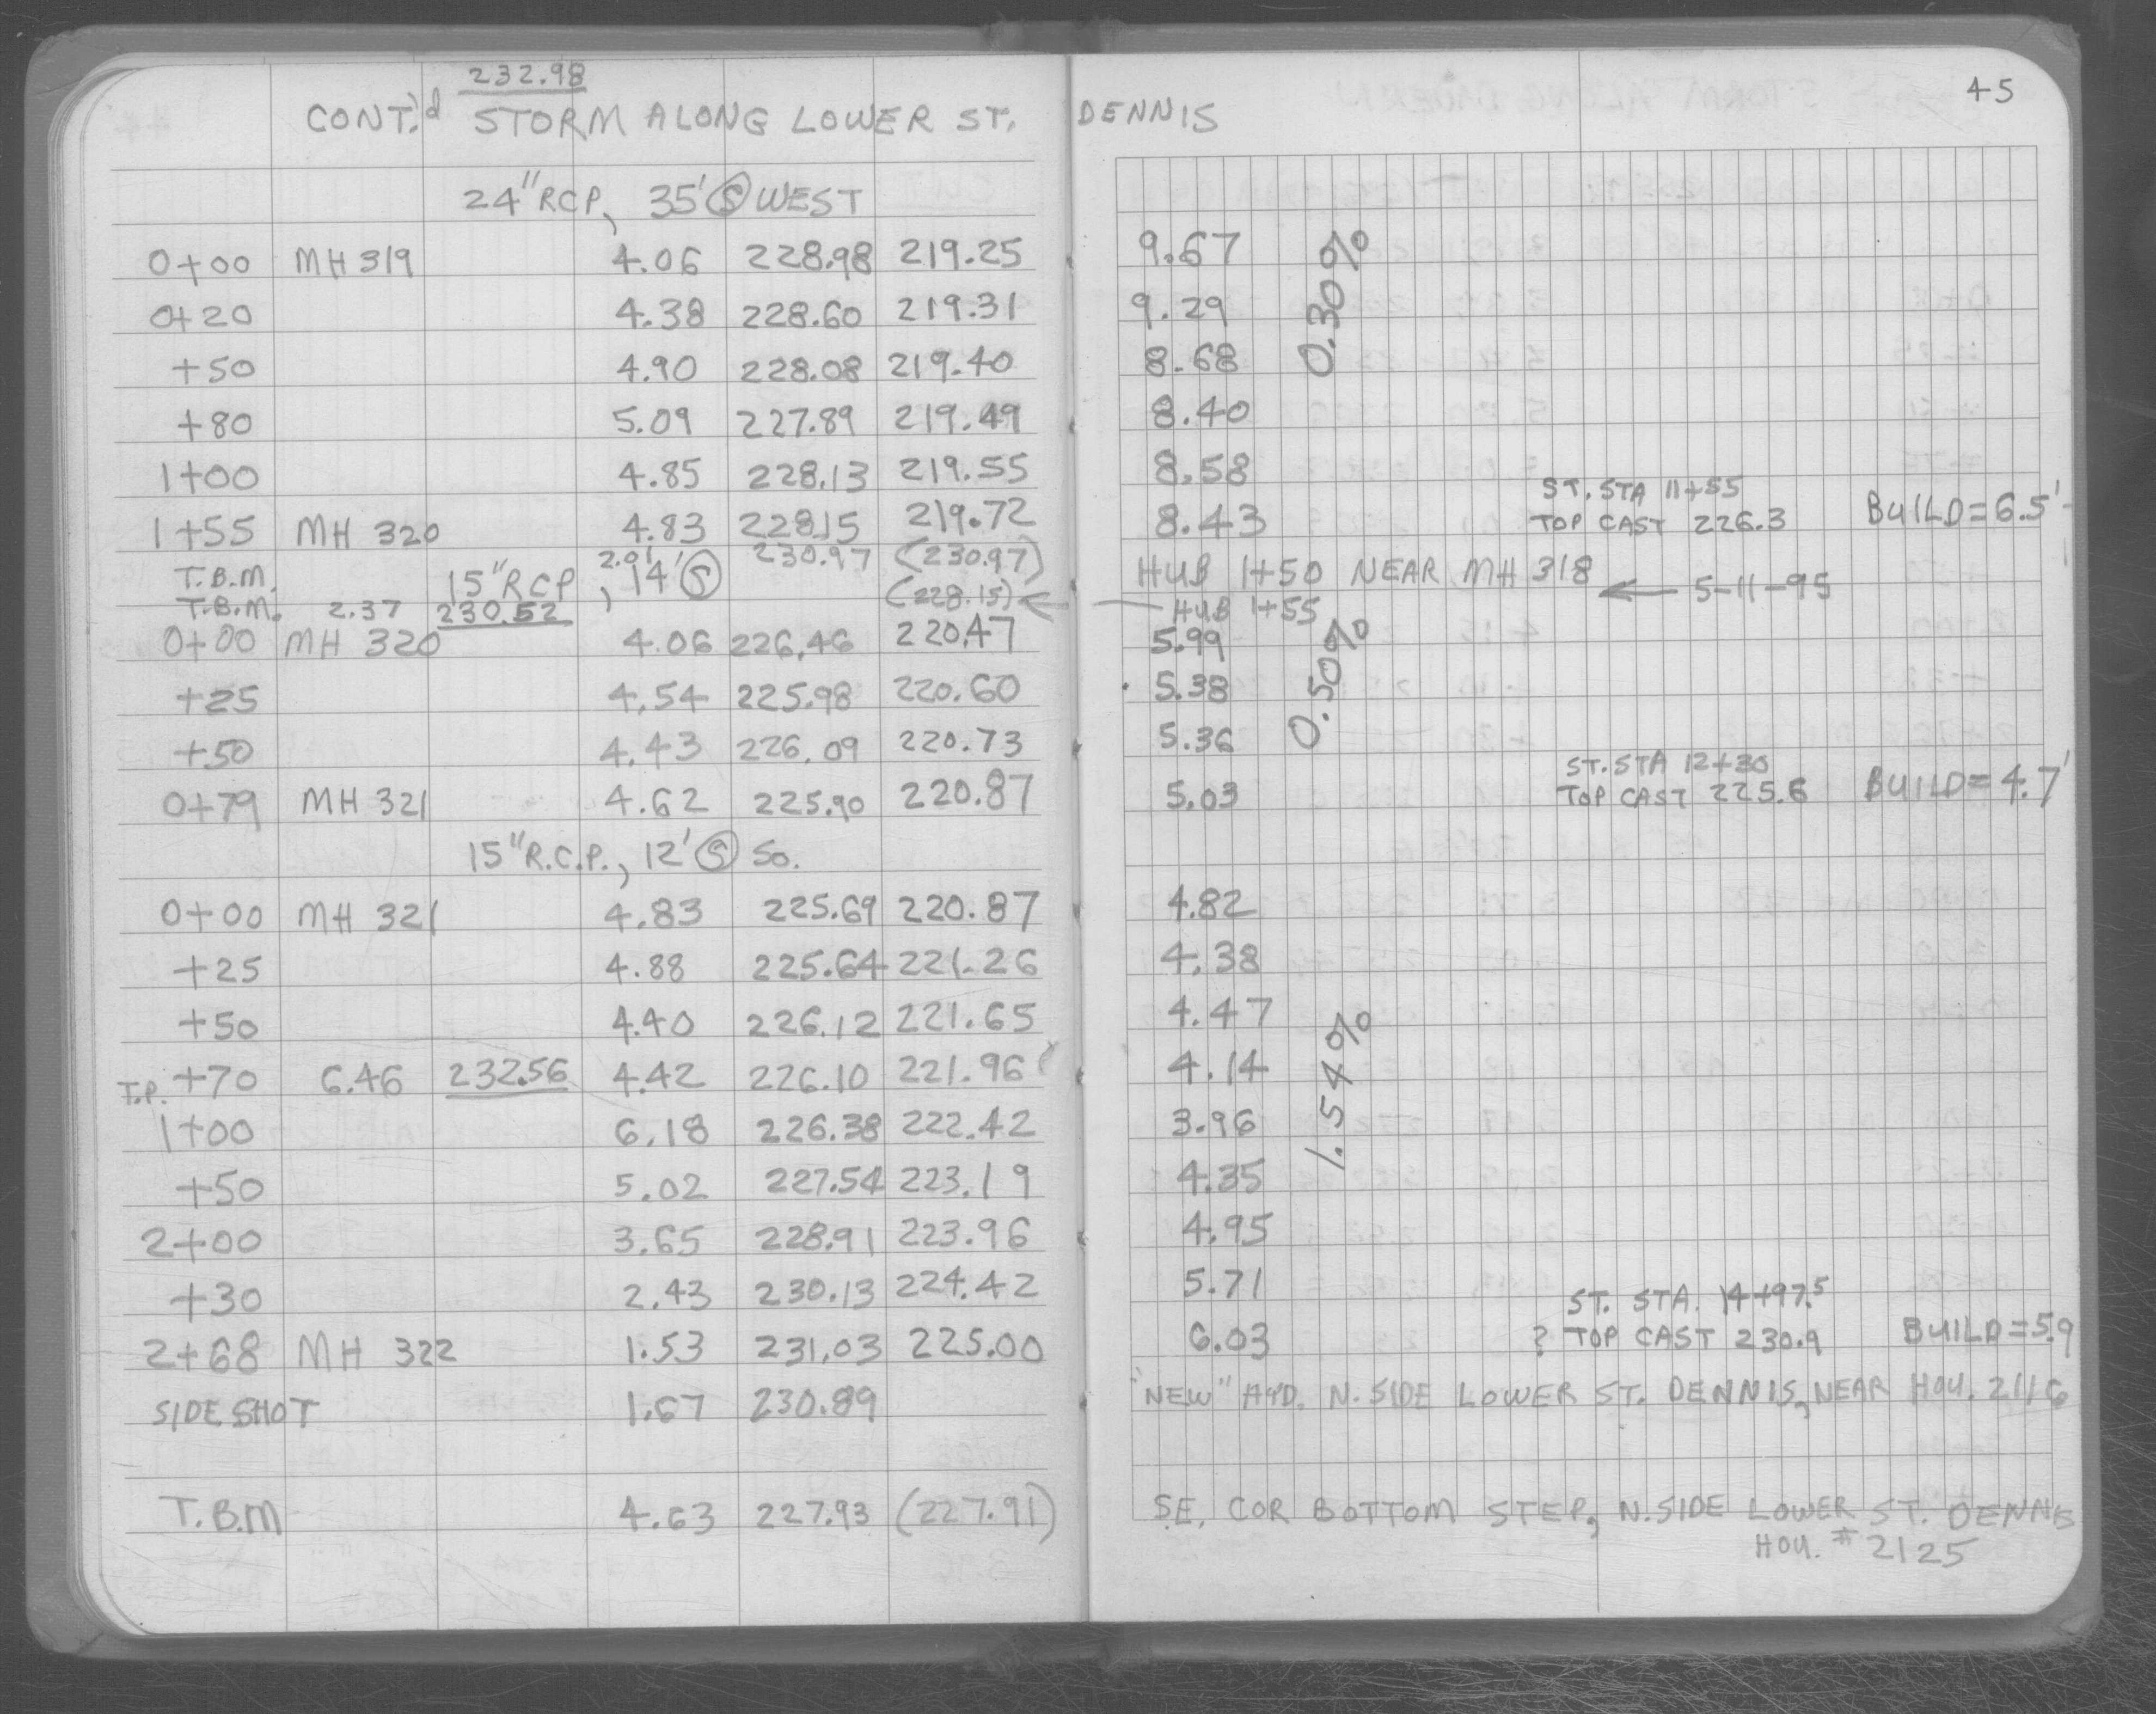 45
232.98
CONT.'d STORM ALONG LOWER ST. DENNIS
24" RCP, 35' Ⓢ WEST
0+00 MH 319 4.06 228.98 219.25 9.67
0+20 4.38 228.60 219.31 9.29
+50 4.90 228.08 219.40 8.68
+80 5.09 227.89 219.49 8.40
1+00 4.85 228.13 219.55 8.58
0.30%
ST. STA 11+55
1+55 MH 320 4.83 228.15 219.72 8.43 TOP CAST 226.3 BUILD=6.5'
T.B.M. 2.01 230.97 (230.97) HUB 1+50 NEAR MH 318 ← 5-11-95
15" RCP, 14' Ⓢ
T.B.M. 2.37 230.52 (228.15) ← HUB 1+55
0+00 MH 320 4.06 226.46 220.47 5.99
+25 4.54 225.98 220.60 5.38
+50 4.43 226.09 220.73 5.36
0.50%
ST. STA 12+30
0+79 MH 321 4.62 225.90 220.87 5.03 TOP CAST 225.6 BUILD=4.7'
15" R.C.P., 12' Ⓢ SO.
0+00 MH 321 4.83 225.69 220.87 4.82
+25 4.88 225.64 221.26 4.38
+50 4.40 226.12 221.65 4.47
T.P. +70 6.46 232.56 4.42 226.10 221.96 4.14
1+00 6.18 226.38 222.42 3.96
1.54%
+50 5.02 227.54 223.19 4.35
2+00 3.65 228.91 223.96 4.95
+30 2.43 230.13 224.42 5.71
ST. STA. 14+97.5
2+68 MH 322 1.53 231.03 225.00 6.03 ? TOP CAST 230.9 BUILD=5.9
SIDE SHOT 1.67 230.89 "NEW" HYD. N. SIDE LOWER ST. DENNIS, NEAR HOU. 2116
T.B.M 4.63 227.93 (227.91) S.E. COR BOTTOM STEP, N. SIDE LOWER ST. DENNIS
HOU. # 2125